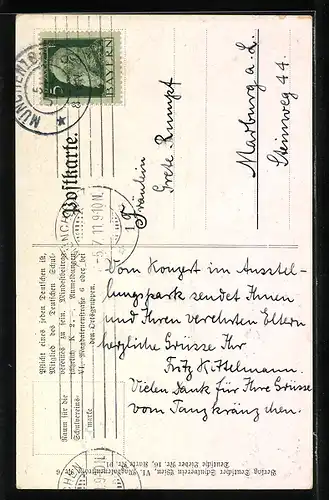 MÜNCHEN
BAYERN
5
Postkarte.
Fräulein
Grete Rumpf
Marburg a. L.
Steinweg 44.
Pflicht eines jeden Deutschen ist,
Mitglied des Deutschen Schul-
vereines zu sein. Mindestbeitrag
jährlich K 2.—. Anmeldungen:
VI, Magdalenenstraße 6 oder bei
den Ortsgruppen.
Raum für die
Schulvereins-
marke
Vom Konzert im Ausstel-
lungspark sendet Ihnen
und Ihren verehrten Eltern
herzliche Grüsse Ihr
Fritz Kittelmann.
Vielen Dank für Ihre Grüsse
vom Tanzkränzchen.
Verlag Deutscher Schulverein Wien, VI. Magdalenenstraße Nr. 6.
Deutsche Lieder Nr. 16, Karte Nr.